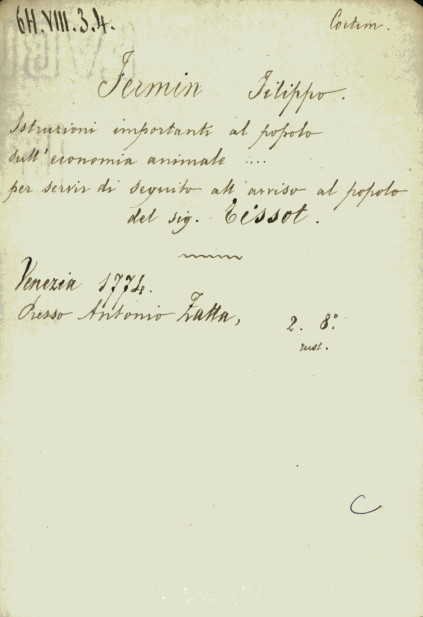 6H.VIII.3.4.
Fermin Filippo.
Istruzioni importanti al popolo
sull' economia animale ....
per servir di seguito all' avviso al popolo
del sig. Tissot.
Venezia 1774.
Presso Antonio Zatta,
2. 8°
rust.
C